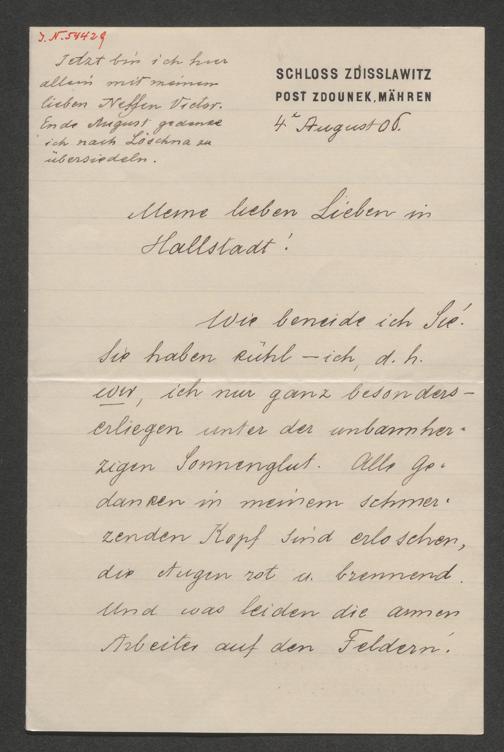 J.N.54429
Jetzt bin ich hier
allein mit meinem
lieben Neffen Victor.
Ende August gedenke
ich nach Löschna zu
übersiedeln.
SCHLOSS ZDISSLAWITZ
POST ZDOUNEK, MÄHREN
4r August 06.
Meine lieben Lieben in
Hallstadt!
Wie beneide ich Sie!
Sie haben kühl – ich, d. h.
wir, ich nur ganz besonders –
erliegen unter der unbarmher-
zigen Sonnenglut. Alle Ge-
danken in meinem schmer-
zenden Kopf sind erloschen,
die Augen rot u. brennend.
Und was leiden die armen
Arbeiter auf den Feldern!